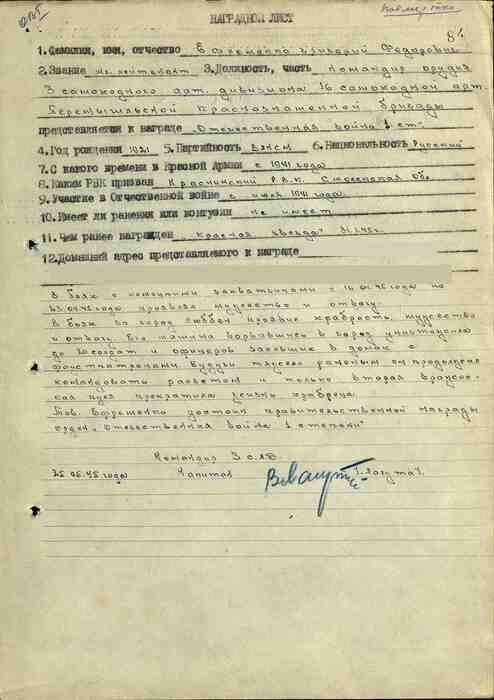 НАГРАДНОЙ ЛИСТ
84
1. Фамилия, имя, отчество Ефременко Григорий Федорович
2. Звание мл. лейтенант 3. Должность, часть Командир орудия
3 самоходного арт. дивизиона 16 самоходной арт.
Перемышльской Краснознаменной бригады
представляется к награде „Отечественная война 1 ст"
4. Год рождения 1921 5. Партийность ВЛКСМ 6. Национальность Русский
7. С какого времени в Красной Армии с 1941 года
8. Каким РВК призван Краснинский Р.В.К. Смоленская об.
9. Участие в Отечественной войне с июля 1941 года
10. Имеет ли ранения или контузии не имеет
11. Чем ранее награжден „Красная звезда"
12. Домашний адрес представляемого к награде
В боях с немецкими захватчиками с 16.04.45 года по
года проявил мужество и отвагу.
В боях за город Люббен проявил храбрость, мужество
и отвагу. Его машина ворвавшись в город уничтожила
до солдат и офицеров засевших в домах с
фаустпатронами. Будучи тяжело раненым он продолжал
командовать расчетом и только вторая вражес-
кая пуля прекратила жизнь храбреца.
Тов. Ефременко достоин правительственной награды
орден „Отечественная война 1 степени"
Командир 3 САД
25.05.45 года Капитан /Лагута/